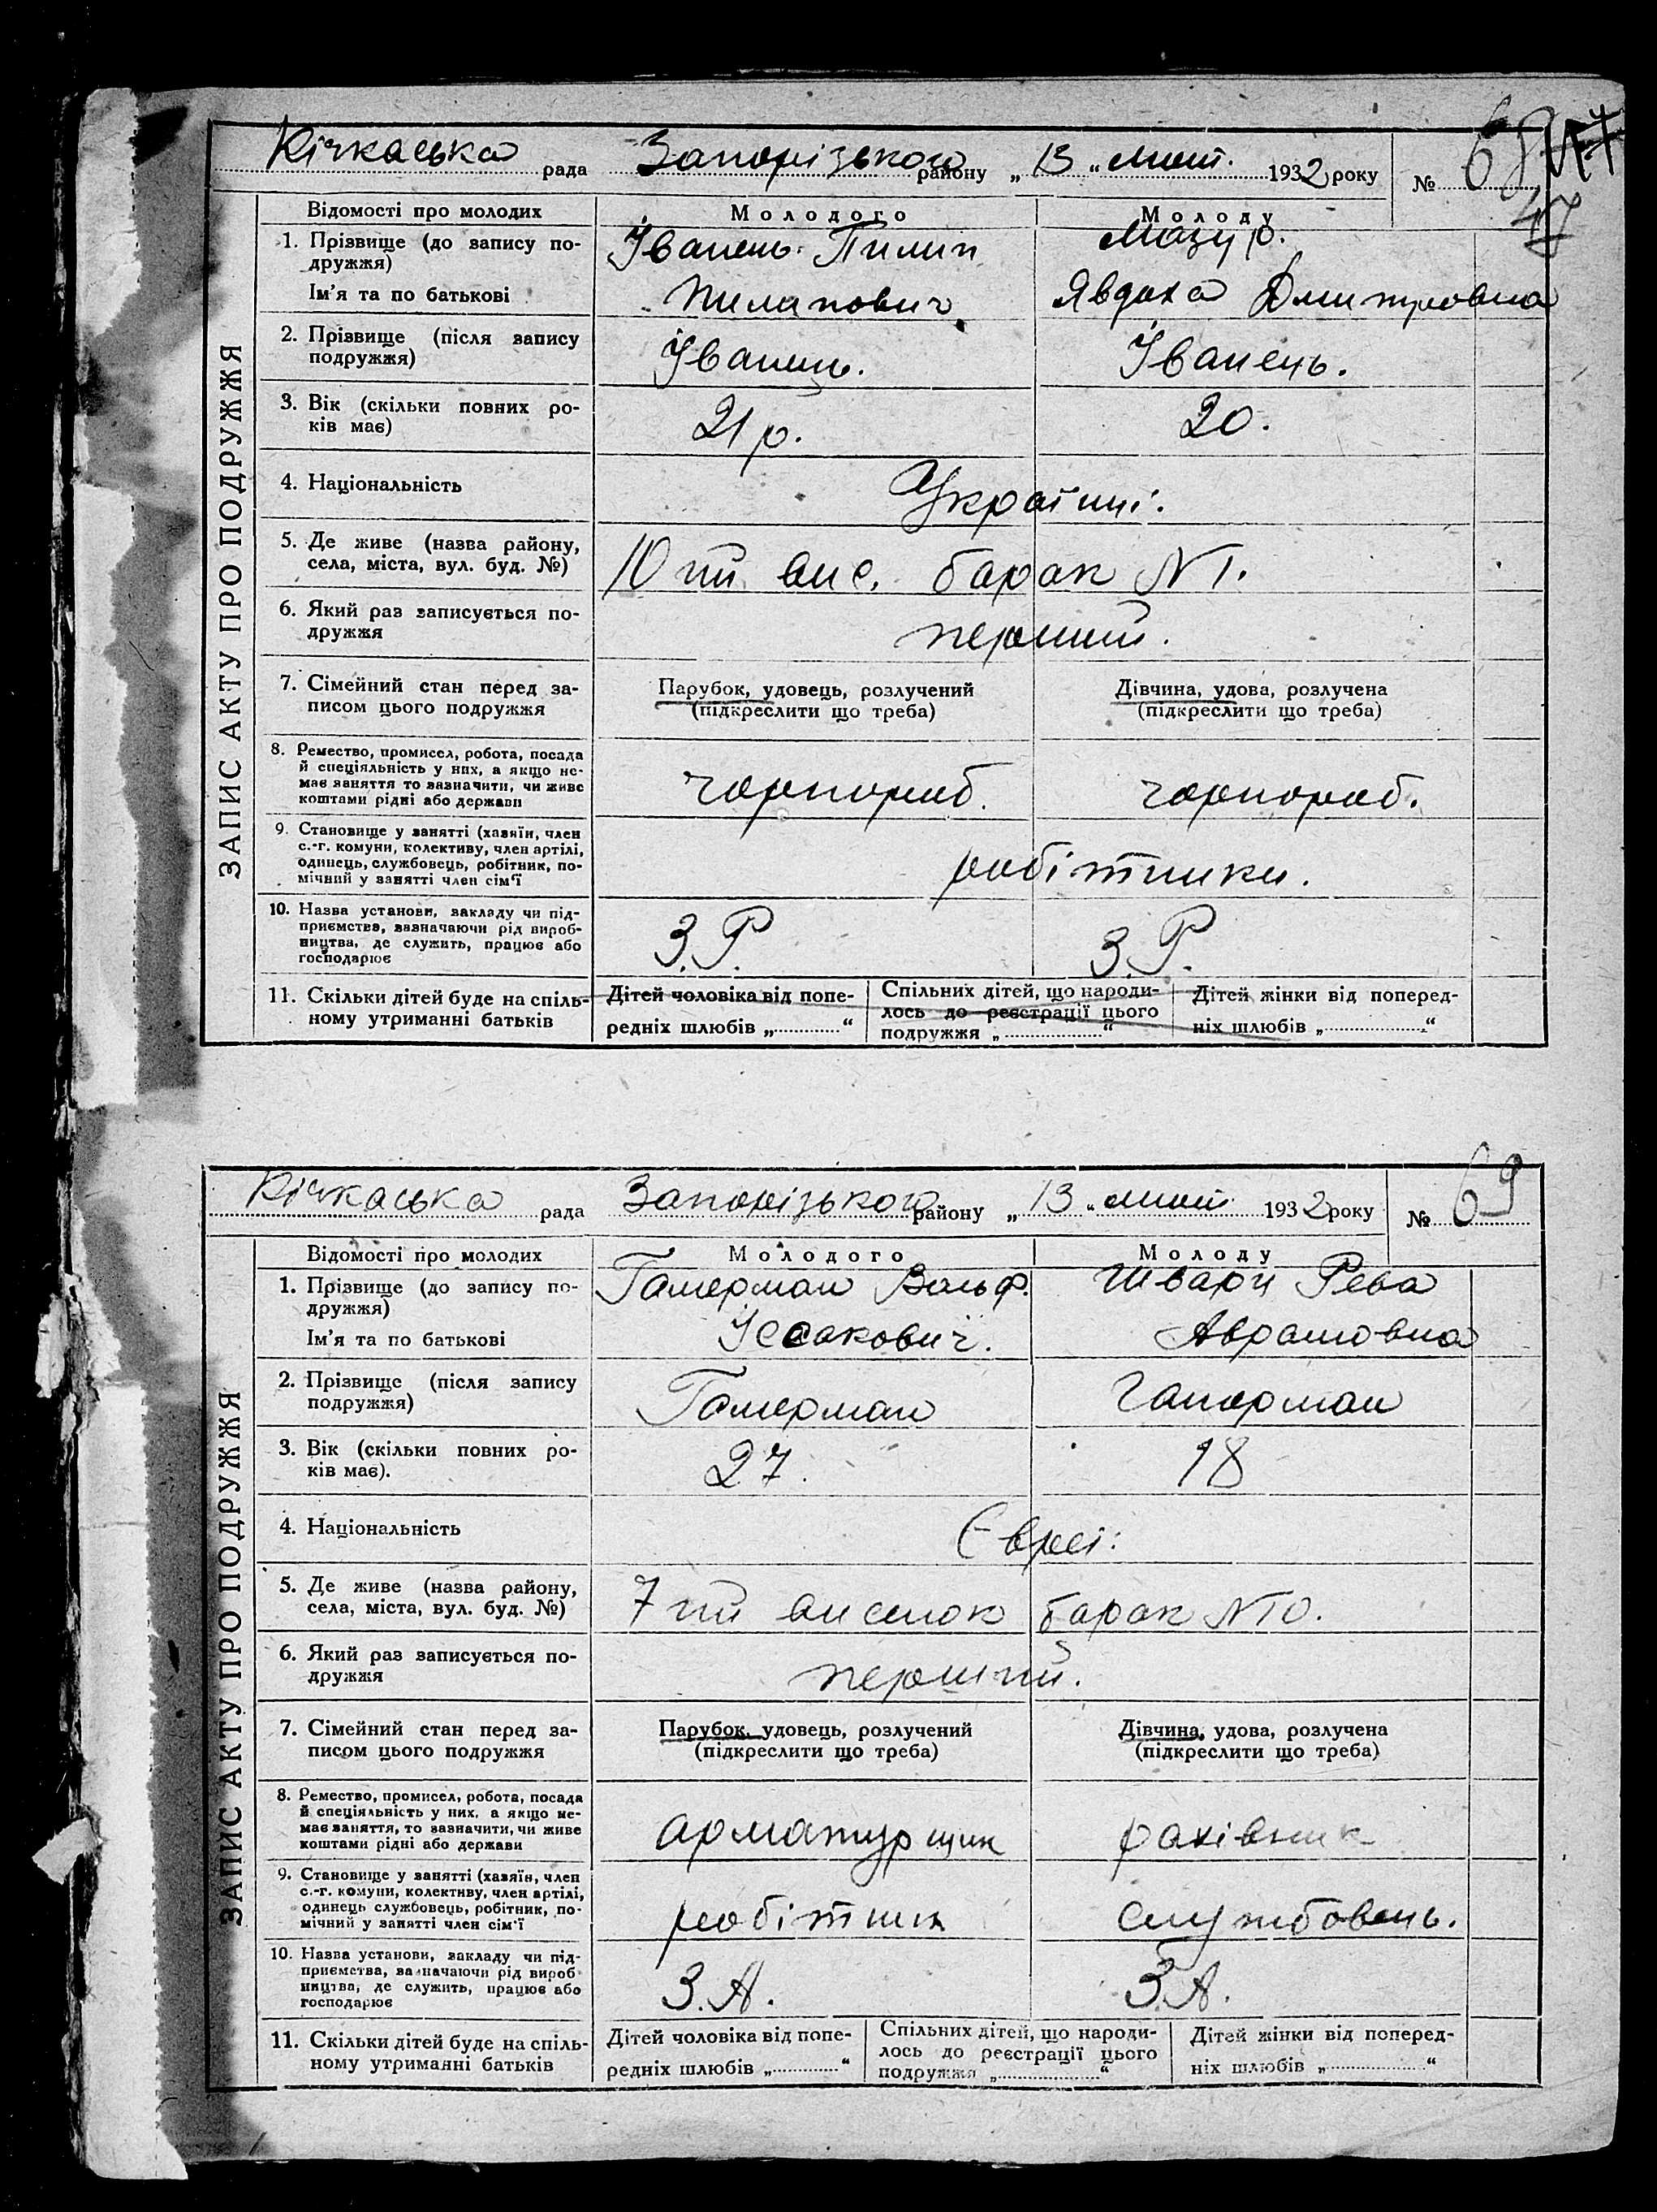 Кічкаська рада Запорізького району „ 13 “ лют. 1932 року № 68
47
ЗАПИС АКТУ ПРО ПОДРУЖЖЯ
Відомості про молодих Молодого Молоду
1. Прізвище (до запису по- Іванець Пилип Мазур.
дружжя)
Ім'я та по батькові Пилипович Явдоха Дмитровна
2. Прізвище (після запису Іванець. Іванець.
подружжя)
3. Вік (скільки повних ро- 21 р. 20.
ків має)
4. Національність Українці.
5. Де живе (назва району, 10 ий вис. барак N 1.
села, міста, вул. буд. №)
6. Який раз записується по- перший.
дружжя
7. Сімейний стан перед за- Парубок, удовець, розлучений Дівчина, удова, розлучена
писом цього подружжя (підкреслити що треба) (підкреслити що треба)
8. Ремество, промисел, робота, посада
й спеціяльність у них, а якщо не-
має заняття то зазначити, чи живе чорнороб. чорнороб.
коштами рідні або держави
9. Становище у занятті (хазяїн, член
с.-г. комуни, колективу, член артілі,
одинець, службовець, робітник, по- робітники.
мічний у занятті член сім'ї
10. Назва установи, закладу чи під-
приємства, зазначаючи рід вироб- З.Р. З.Р.
ництва, де служить, працює або
господарює
11. Скільки дітей буде на спіль- Дітей чоловіка від попе- Спільних дітей, що народи- Дітей жінки від поперед-
ному утриманні батьків редніх шлюбів „ “ лось до реєстрації цього ніх шлюбів „ “
подружжя „ “
Кічкаська рада Запорізького району „ 13 “ лют 1932 року № 69
ЗАПИС АКТУ ПРО ПОДРУЖЖЯ
Відомості про молодих Молодого Молоду
1. Прізвище (до запису по- Гамерман Вольф. Шварц Рева
дружжя)
Ім'я та по батькові Ісакович. Аврамовна
2. Прізвище (після запису Гамерман Гамерман
подружжя)
3. Вік (скільки повних ро- 27. 18
ків має).
4. Національність Євреї.
5. Де живе (назва району, 7 ий виселок барак N 10.
села, міста, вул. буд. №)
6. Який раз записується по- перший.
дружжя
7. Сімейний стан перед за- Парубок, удовець, розлучений Дівчина, удова, розлучена
писом цього подружжя (підкреслити що треба) (підкреслити що треба)
8. Ремество, промисел, робота, посада
й спеціяльність у них, а якщо не-
має заняття, то зазначити, чи живе арматурщик рахівник
коштами рідні або держави
9. Становище у занятті (хазяїн, член
с.-г. комуни, колективу, член артілі,
одинець службовець, робітник, по- робітник службовець.
мічний у занятті член сім'ї
10. Назва установи, закладу чи під-
приємства, зазначаючи рід вироб
ництва, де служить, працює або З.А. З.А.
господарює
11. Скільки дітей буде на спіль- Дітей чоловіка від попе- Спільних дітей, що народи- Дітей жінки від поперед-
ному утриманні батьків редніх шлюбів „ “ лось до реєстрації цього ніх шлюбів „ “
подружжя „ “